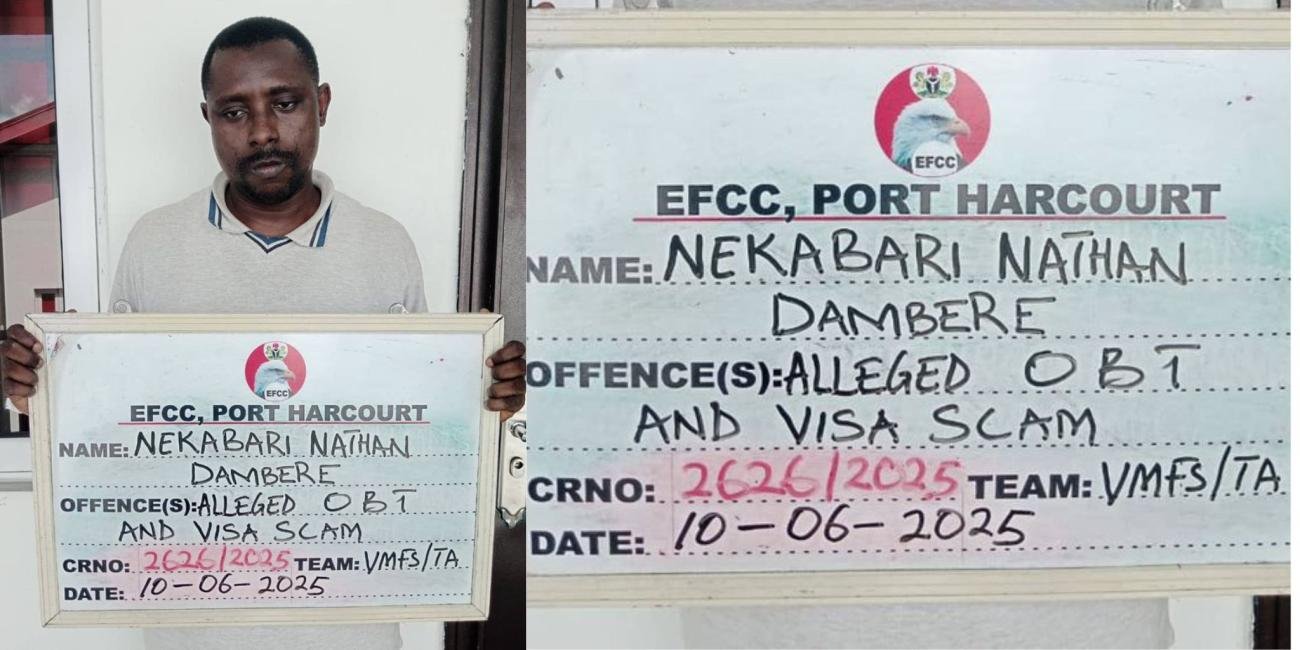 EFCC
EFCC, PORT HARCOURT
NAME: NEKABARI NATHAN
DAMBERE
OFFENCE(S): ALLEGED OBT
AND VISA SCAM
CRNO: 2626/2025 TEAM: VMFS/TA
DATE: 10-06-2025
EFCC
EFCC, PORT HARCOURT
NAME: NEKABARI NATHAN
DAMBERE
OFFENCE(S): ALLEGED OBT
AND VISA SCAM
CRNO: 2626/2025 TEAM: VMFS/TA
DATE: 10-06-2025